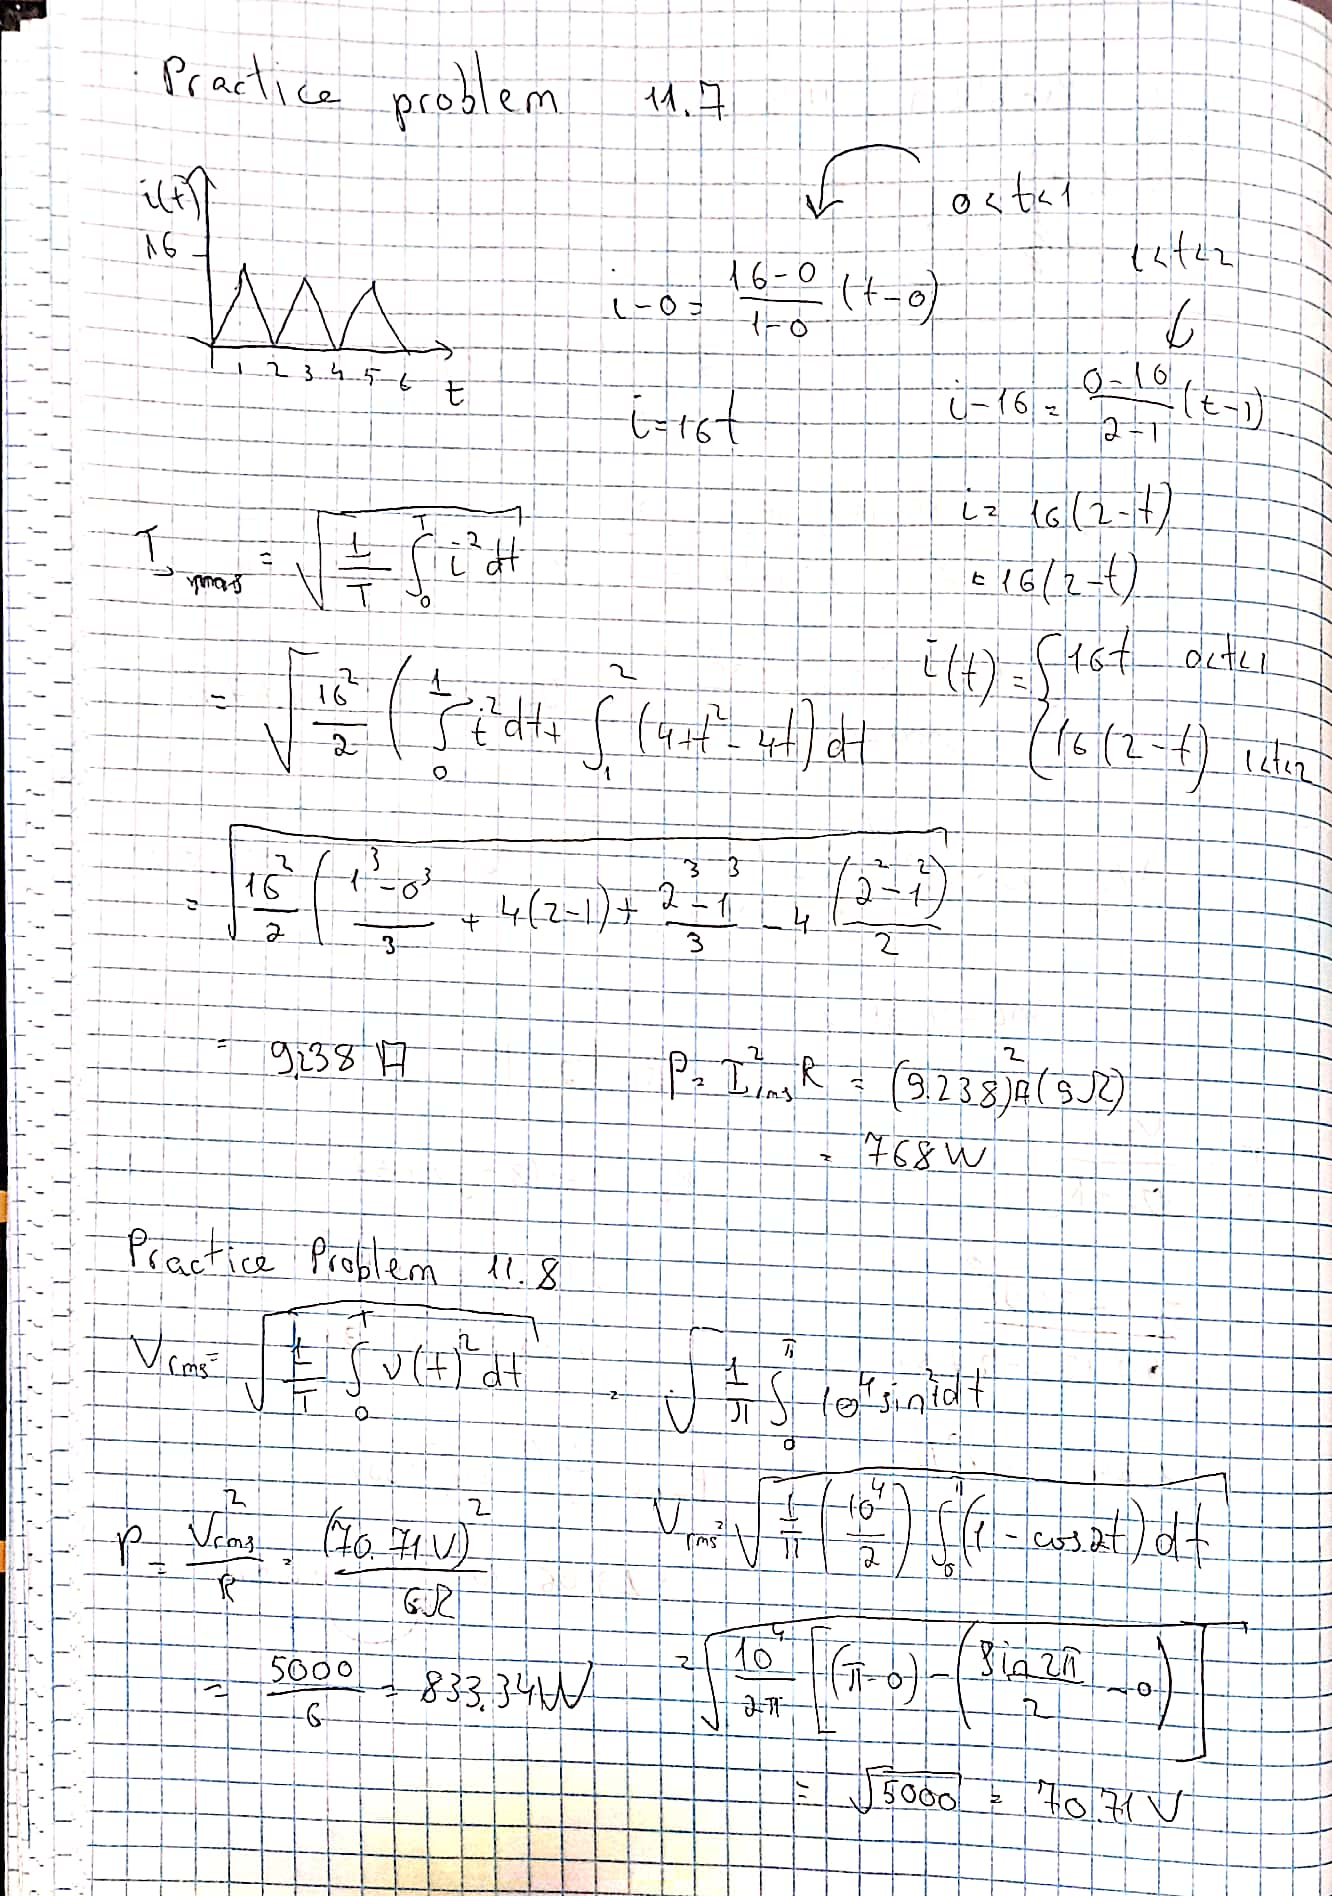 Practice problem 11.7
i(t)
16
1 2 3 4 5 6 t
0<t<1
i-0 = \frac{16-0}{1-0} (t-0)
i=16t
1<t<2
i-16 = \frac{0-16}{2-1} (t-1)
i= 16(2-t)
= 16(2-t)
i(t) = { 16t 0<t<1
{ 16(2-t) 1<t<2
I_{rms} = \sqrt{\frac{1}{T} \int_0^T i^2 dt}
= \sqrt{\frac{16^2}{2} ( \int_0^1 t^2 dt + \int_1^2 (4+t^2-4t) dt
= \sqrt{\frac{16^2}{2} ( \frac{1^3-0^3}{3} + 4(2-1) + \frac{2^3-1^3}{3} - 4 \frac{(2^2-1^2)}{2}}
= 9.238 A
P = I_{rms}^2 R = (9.238)^2 A (9Ω)
= 768 W
Practice Problem 11.8
V_{rms} = \sqrt{\frac{1}{T} \int_0^T v(t)^2 dt} = \sqrt{\frac{1}{π} \int_0^π 10^4 sin^2 t dt
V_{rms} = \sqrt{\frac{1}{π} (\frac{10^4}{2}) \int_0^π (1 - cos2t) dt}
= \sqrt{\frac{10^4}{2π} [(π-0) - (\frac{Sin2π}{2} - 0)]}
= \sqrt{5000} = 70.71 V
P = \frac{V_{rms}^2}{R} = \frac{(70.71 V)^2}{6Ω}
= \frac{5000}{6} = 833.34 W